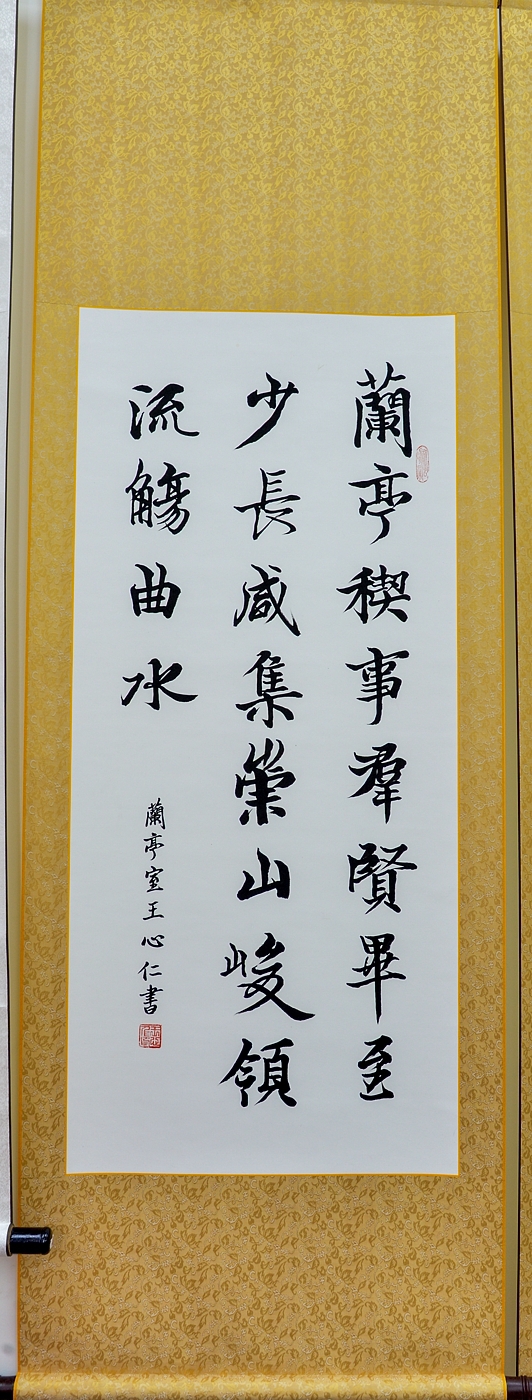 蘭亭稧事羣賢畢至
少長咸集崇山峻領
流觴曲水
蘭亭室王心仁書